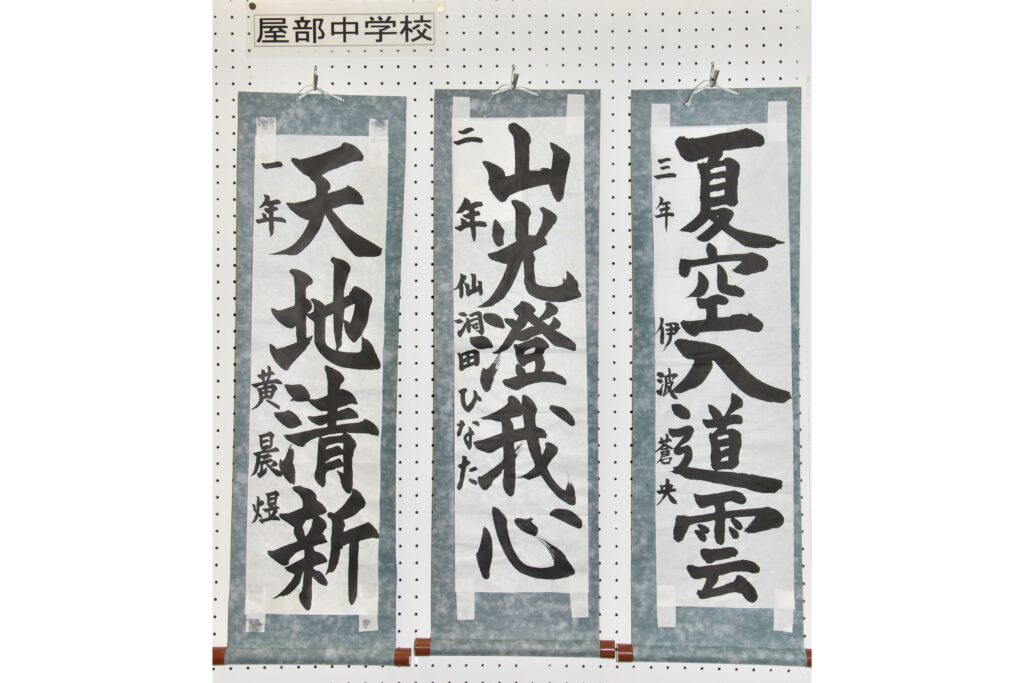 屋部中学校
夏空入道雲
三年 伊波蒼央
山光澄我心
二年 仙洞田ひなた
天地清新
一年 黄晨煜